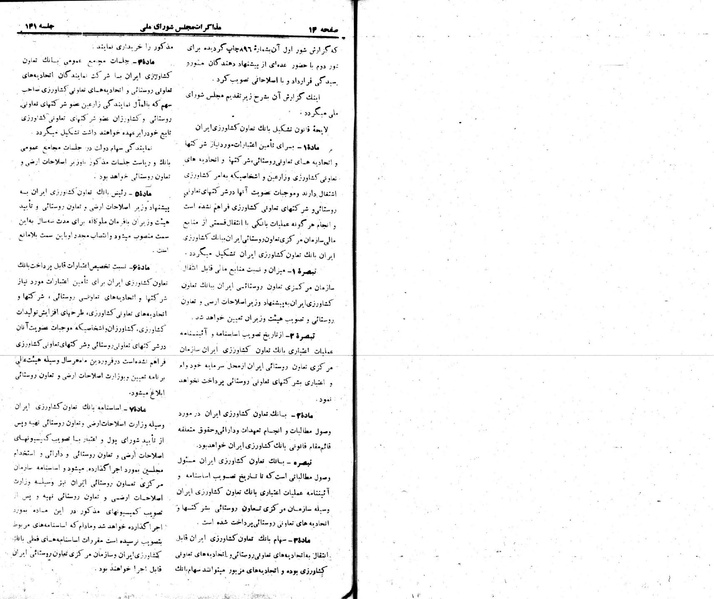 صفحه ۱۴
مذاکرات مجلس شورای ملی
جلسه ۱۴۱
که گزارش شور اول آن بشماره ۸۹۶ چاپ گردیده برای
شور دوم با حضور عده‌ای از پیشنهاد دهندگان
رسیدگی قرارداد و با اصلاحاتی تصویب کرد.
اینك گزارش آن بشرح زیر تقدیم مجلس شورای
ملی میگردد.
لایحه قانون تشکیل بانك تعاون کشاورزی ایران
ماده۱- برای تأمین اعتبارات مورد نیاز شرکتها
و اتحادیه های تعاونی روستائی، شرکتها و اتحادیه های
تعاونی کشاورزی و زارعین و اشخاصیکه به امر کشاورزی
اشتغال دارند و موجبات عضویت آنها در شرکتهای تعاونی
روستائی و شرکتهای تعاونی کشاورزی فراهم نشده است
و انجام هر گونه عملیات بانکی با انتقال قسمتی از منابع
مالی سازمان مرکزی تعاون روستائی ایران، بانك کشاورزی
ایران به بانك تعاون کشاورزی ایران تشکیل میگردد.
تبصره ۱- میزان و نسبت منابع مالی قابل انتقال
سازمان مرکزی تعاون روستائی ایران به بانك تعاون
کشاورزی ایران به پیشنهاد وزیر اصلاحات ارضی و تعاون
روستائی و تصویب هیئت وزیران تعیین خواهد شد.
تبصره ۲- از تاریخ تصویب اساسنامه و آئیننامه
عملیات اعتباری بانك تعاون کشاورزی ایران سازمان
مرکزی تعاون روستائی ایران از محل سرمایه خود وام
و اعتباری بشرکتهای تعاونی روستائی پرداخت نخواهد
نمود.
ماده۲- بانك تعاون کشاورزی ایران در مورد
وصول مطالبات و انجام تعهدات و دارائی و حقوق متعلقه
قائم‌مقام قانونی بانك کشاورزی ایران خواهد بود.
تبصره- بانك تعاون کشاورزی ایران مسئول
وصول مطالباتی است که تا تاریخ تصویب اساسنامه و
آئیننامه عملیات اعتباری بانك تعاون کشاورزی ایران
وسیله سازمان مرکزی تعاون روستائی بشرکتها و
اتحادیه های تعاونی روستائی پرداخت شده است.
ماده۳- سهام بانك تعاون کشاورزی ایران قابل
انتقال به اتحادیه‌های تعاونی روستائی و اتحادیه‌های تعاونی
کشاورزی بوده و اتحادیه‌های مزبور میتوانند سهام بانك
مذکور را خریداری نمایند.
ماده۴- جلسات مجامع عمومی بانك تعاون
کشاورزی ایران با شرکت نمایندگان اتحادیه‌های
تعاونی روستائی و اتحادیه‌های تعاونی کشاورزی صاحب
سهم که بالمآل نمایندگی زارعین عضو شرکتهای تعاونی
روستائی و کشاورزان عضو شرکتهای تعاونی کشاورزی
تابع خود را بر عهده خواهند داشت تشکیل میگردد.
نمایندگی سهام دولت در جلسات مجامع عمومی
بانك و ریاست جلسات مذکور با وزیر اصلاحات ارضی و
تعاون روستائی خواهد بود.
ماده۵- رئیس بانك تعاون کشاورزی ایران به
پیشنهاد وزیر اصلاحات ارضی و تعاون روستائی و تأیید
هیئت وزیران با فرمان ملوکانه برای مدت سه سال به این
سمت منصوب میشود و انتصاب مجدد او باین سمت بلامانع
است.
ماده۶- نسبت تخصیص اعتبارات قابل پرداخت بانك
تعاون کشاورزی ایران برای تأمین اعتبارات مورد نیاز
شرکتها و اتحادیه‌های تعاونی روستائی، شرکتها و
اتحادیه‌های تعاونی کشاورزی، طرحهای افزایش تولیدات
کشاورزی، کشاورزان و اشخاصیکه موجبات عضویت آنان
در شرکتهای تعاونی روستائی و شرکتهای تعاونی کشاورزی
فراهم نشده است در فروردین ماه هر سال وسیله هیئت عالی
برنامه تعیین و بوزارت اصلاحات ارضی و تعاون روستائی
ابلاغ میشود.
ماده۷- اساسنامه بانك تعاون کشاورزی ایران
وسیله وزارت اصلاحات ارضی و تعاون روستائی تهیه و پس
از تأیید شورای پول و اعتبار با تصویب کمیسیونهای
اصلاحات ارضی و تعاون روستائی و دارائی و استخدام
مجلسین بمورد اجرا گذارده میشود و اساسنامه سازمان
مرکزی تعاون روستائی ایران نیز وسیله وزارت
اصلاحات ارضی و تعاون روستائی تهیه و پس از
تصویب کمیسیونهای مذکور در این ماده بمورد
اجرا گذارده خواهد شد و مادام که اساسنامه‌های مربوط
بتصویب نرسیده است مقررات اساسنامه‌های فعلی بانك
کشاورزی ایران و سازمان مرکزی تعاون روستائی ایران
قابل اجرا خواهند بود.